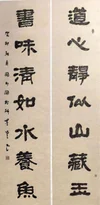 道心靜似山藏玉
書味清如水養魚